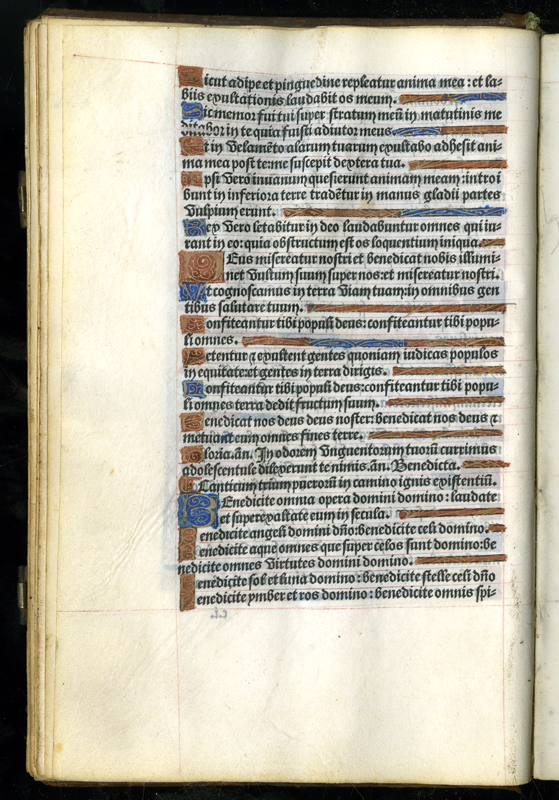 Sicut adipe et pinguedine repleatur anima mea : et la-
biis exultationis laudabit os meum.
Sit memor fui tui super stratum meū in matutinis me
ditabor in te quia fuisti adiutor meus.
Et in velamēto alarum tuarum exultabo adhesit ani-
ma mea post te: me suscepit dextera tua.
Ipsi vero in vanum quesierunt animam meam : introi
bunt in inferiora terre tradētur in manus gladii partes
vulpium erunt.
Rex vero letabitur in deo laudabuntur omnes qui iu-
rant in eo: quia obstructum est os loquentium iniqua.
DEus misereatur nostri et benedicat nobis illumi
net vultum suum super nos: et misereatur nostri.
Vt cognoscamus in terra viam tuam: in omnibus gen
tibus salutare tuum.
Confiteantur tibi populi deus: confiteantur tibi popu-
li omnes.
Letentur ⁊ exultent gentes quoniam iudicas populos
in equitate: et gentes in terra dirigis.
Confiteantur tibi populi deus: confiteantur tibi popu-
li omnes terra dedit fructum suum.
Benedicat nos deus deus noster: benedicat nos deus ⁊
metuant eum omnes fines terre.
Gloria. añ. In odorem vnguentorum tuorū currimus
adolescentule dilexerunt te nimis. añ. Benedicta.
Canticum trium puerorū in camino ignis existentiū.
BEnedicite omnia opera domini domino: laudate
et superexaltate eum in secula.
Benedicite angeli domini dño: benedicite celi domino.
Benedicite aque omnes que super celos sunt domino: be
nedicite omnes virtutes domini domino.
Benedicite sol et luna domino : benedicite stelle celi dño
Benedicite ymber et ros domino : benedicite omnis spi-